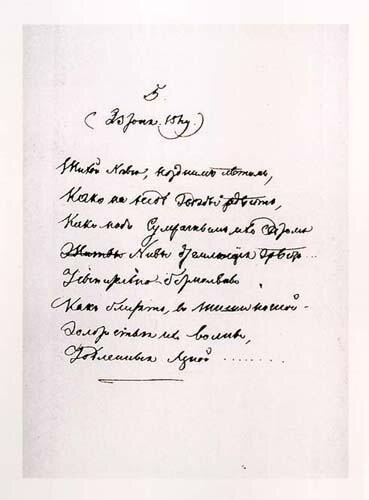 5.
(23 Июля. 1849)
Тихой ночью, позднимъ лѣтомъ,
Какъ на небѣ звѣзды рдѣютъ,
Какъ подъ сумрачнымъ ихъ свѣтомъ
Нивы дремлющія зрѣютъ...
Усыпительно-безмолвны
Какъ блестятъ, въ тиши ночной
Золотистыя ихъ волны,
Убѣленныя луной ........